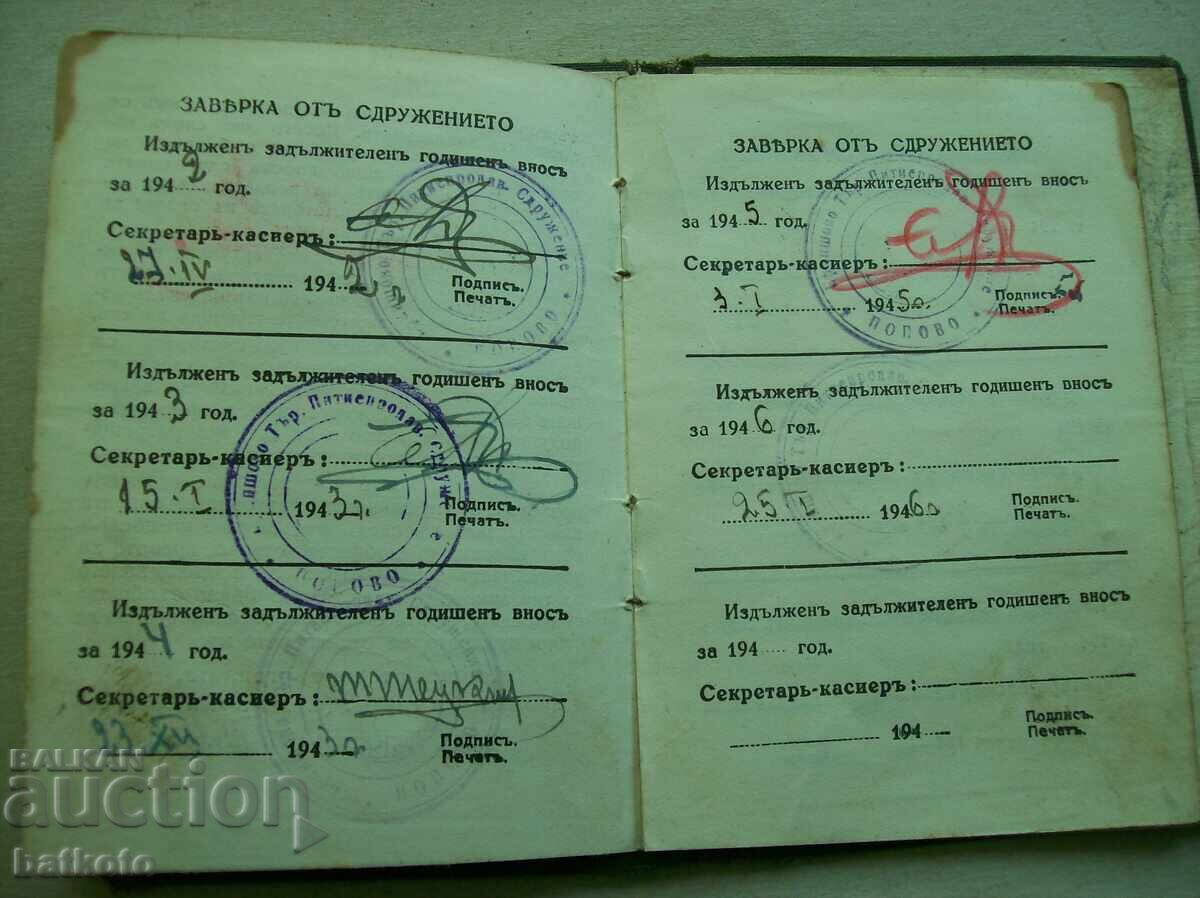 ЗАВѢРКА ОТЪ СДРУЖЕНИЕТО
Издълженъ задължителенъ годишенъ вносъ
за 1942 год.
Секретарь-касиеръ:
27·IV 1942
Подпись.
Печатъ.
Издълженъ задължителенъ годишенъ вносъ
за 1943 год.
Секретарь-касиеръ:
15·I 1943
Подпись.
Печатъ.
Тър. Питиепродав. Сдружение
ПОПОВО
Издълженъ задължителенъ годишенъ вносъ
за 1944 год.
Секретарь-касиеръ:
23 XII 1943
Подпись.
Печатъ.
ЗАВѢРКА ОТЪ СДРУЖЕНИЕТО
Издълженъ задължителенъ годишенъ вносъ
за 1945 год.
Секретарь-касиеръ:
3·I 1945
Подпись.
Печатъ.
ПОПОВО
Издълженъ задължителенъ годишенъ вносъ
за 1946 год.
Секретарь-касиеръ:
25 I 1946
Подпись.
Печатъ.
Издълженъ задължителенъ годишенъ вносъ
за 194 год.
Секретарь-касиеръ:
194
Подпись.
Печатъ.
BALKAN
auction
batkoto